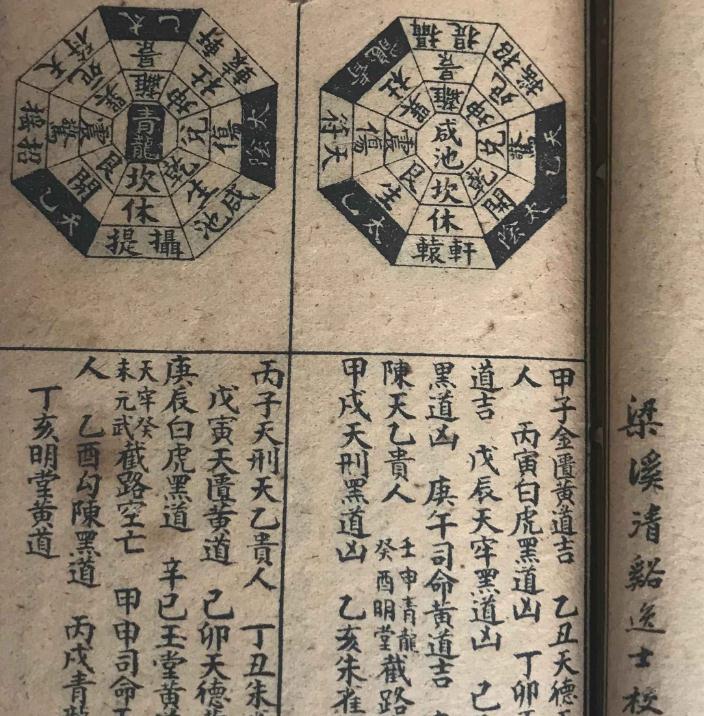 梁溪清谿逸士校
攝提
招搖
天乙
太陰
軒轅
太乙
天符
青龍
景
死
驚
開
休
生
傷
杜
離
坤
兌
乾
坎
艮
震
巽
咸池
甲子金匱黃道吉 乙丑天德
人 丙寅白虎黑道凶 丁卯
道吉 戊辰天牢黑道凶 己
黑道凶 庚午司命黃道吉
陳天乙貴人 壬申青龍癸酉明堂截路
甲戌天刑黑道凶 乙亥朱雀
太乙
軒轅
太陰
咸池
攝提
天乙
招搖
天符
景
杜
傷
生
休
開
驚
死
離
坤
兌
乾
坎
艮
震
巽
青龍
丙子天刑天乙貴人 丁丑朱
戊寅天匱黃道 己卯天德
庚辰白虎黑道 辛巳玉堂黃
天牢癸未元武截路空亡 甲申司命
人 乙酉勾陳黑道 丙戌青龍
丁亥明堂黃道